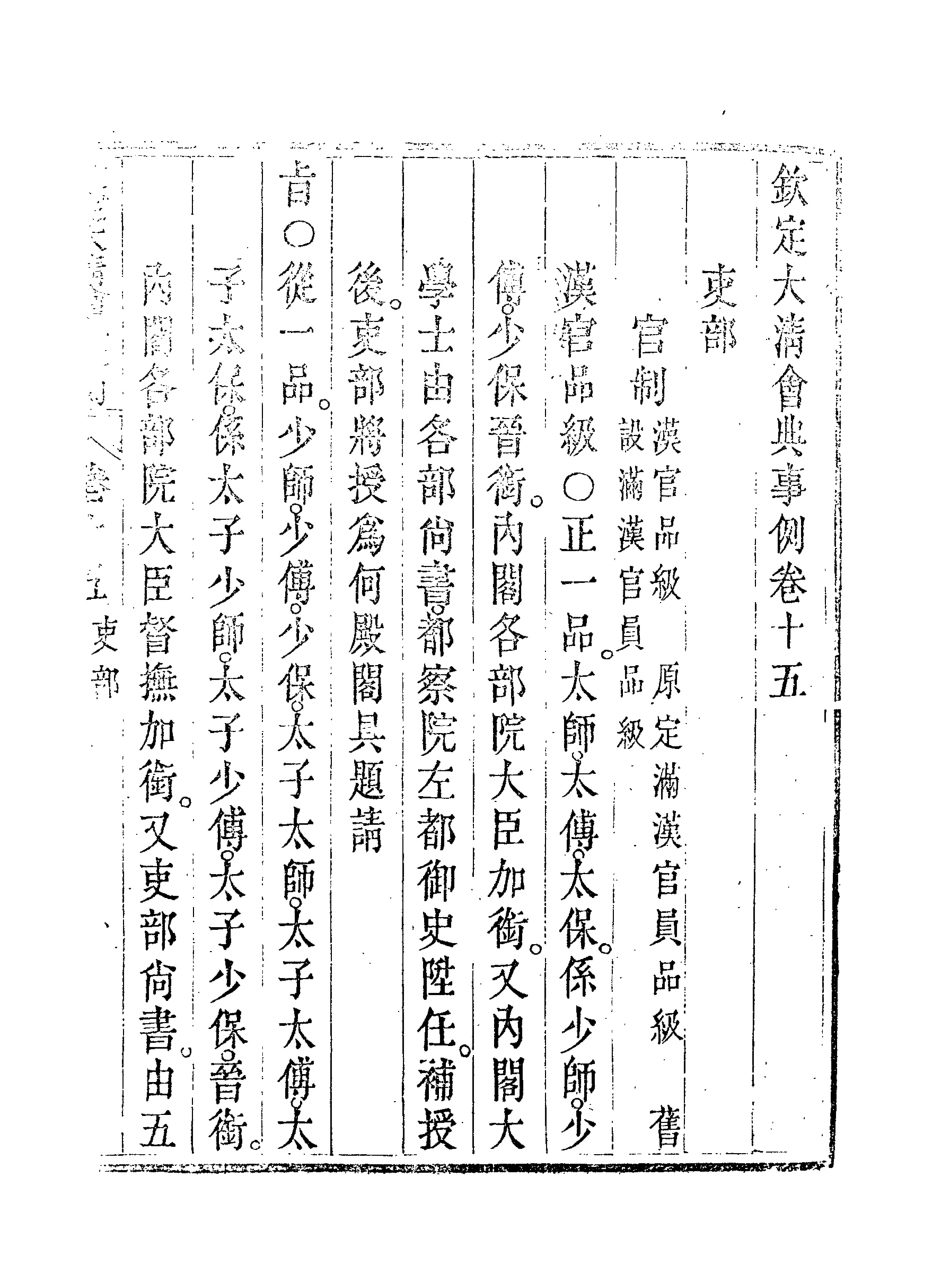 欽定大淸會典事例卷十五
吏部
官制 漢官品級 原定滿漢官員品級 舊
設滿漢官員品級
漢官品級○正一品。太師。太傅。太保。係少師。少
傅。少保晉銜。內閣各部院大臣加銜。又內閣大
學士由各部尙書。都察院左都御史陞任。補授
後。吏部將授爲何殿閣具題請
旨○從一品。少師。少傅。少保。太子太師。太子太傅。太
子太保。係太子少師。太子少傅。太子少保。晉銜。
內閣各部院大臣督撫加銜。又吏部尙書。由五
卷十五 吏部